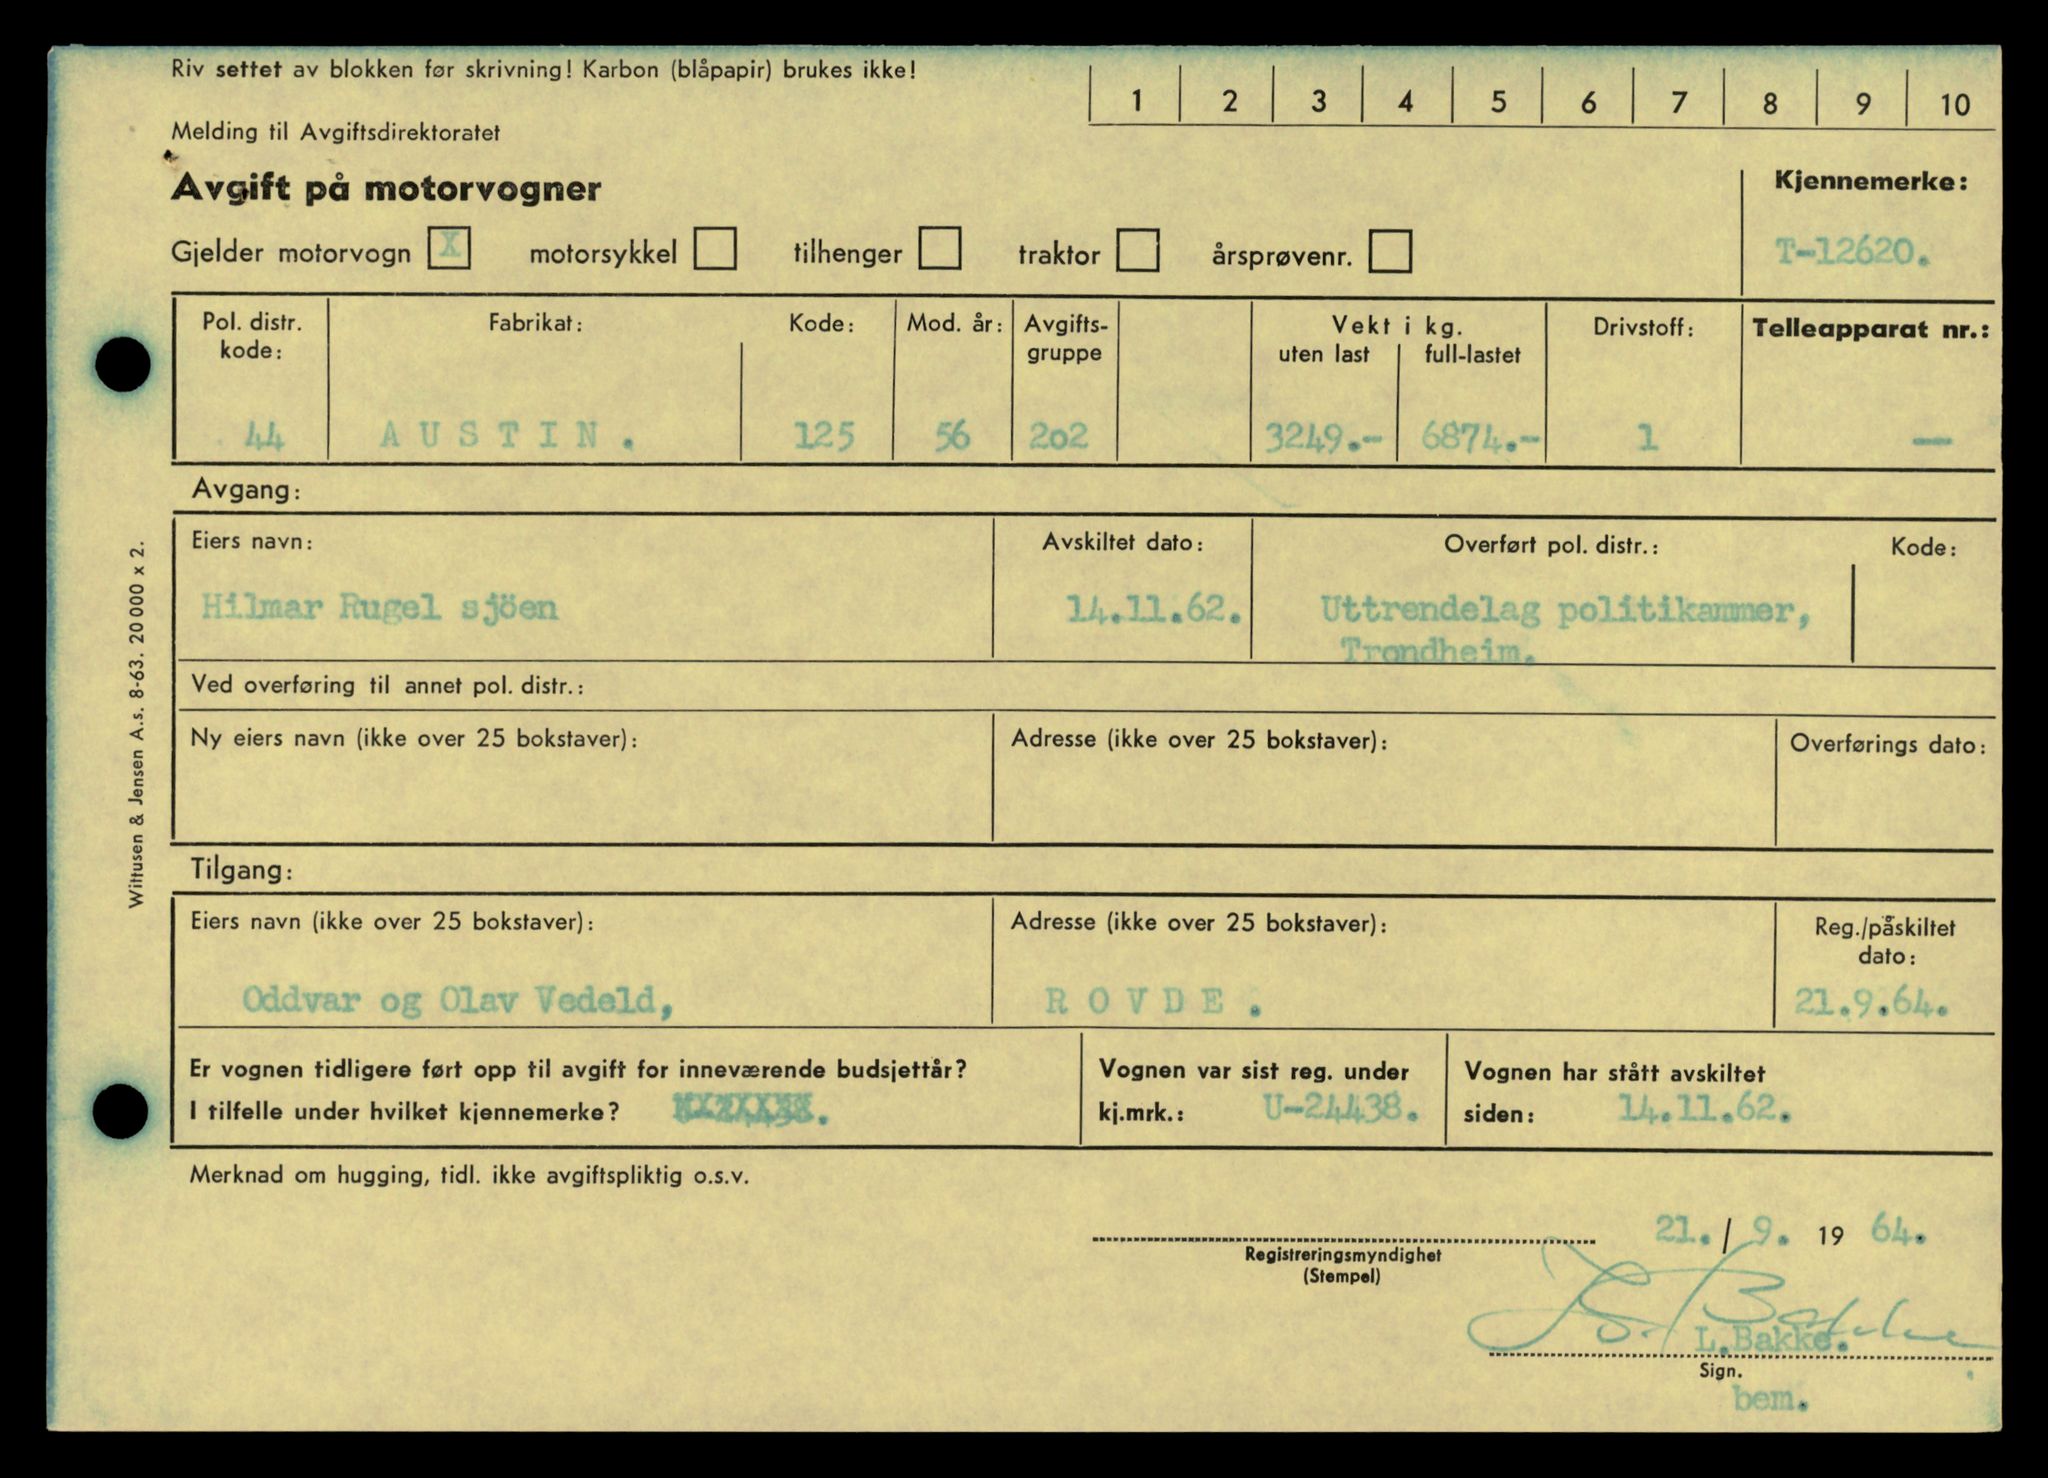 Riv settet av blokken før skrivning! Karbon (blåpapir) brukes ikke!
1 2 3 4 5 6 7 8 9 10
Melding til Avgiftsdirektoratet
Avgift på motorvogner
Kjennemerke:
Gjelder motorvogn X motorsykkel tilhenger traktor årsprøvenr.
T-12620.
Pol. distr. kode: Fabrikat: Kode: Mod. år: Avgifts- gruppe Vekt i kg. uten last full-lastet Drivstoff: Telleapparat nr.:
44 AUSTIN. 125 56 202 3249.- 6874.- 1 —
Avgang:
Eiers navn: Avskiltet dato: Overført pol. distr.: Kode:
Hilmar Rugel sjöen 14.11.62. Uttrendelag politikammer,
Trondheim.
Ved overføring til annet pol. distr.:
Ny eiers navn (ikke over 25 bokstaver): Adresse (ikke over 25 bokstaver): Overførings dato:
Tilgang:
Eiers navn (ikke over 25 bokstaver): Adresse (ikke over 25 bokstaver): Reg./påskiltet
dato:
Oddvar og Olav Vedeld, ROVDE. 21.9.64.
Er vognen tidligere ført opp til avgift for inneværende budsjettår? Vognen var sist reg. under Vognen har stått avskiltet
I tilfelle under hvilket kjennemerke? kj.mrk.: U-24438. siden: 14.11.62.
Merknad om hugging, tidl. ikke avgiftspliktig o.s.v.
21. / 9. 19 64.
Registreringsmyndighet
(Stempel)
L. Bakke
L.Bakke.
Sign.
bem.
Wittusen & Jensen A.s. 8-63. 20 000 x 2.